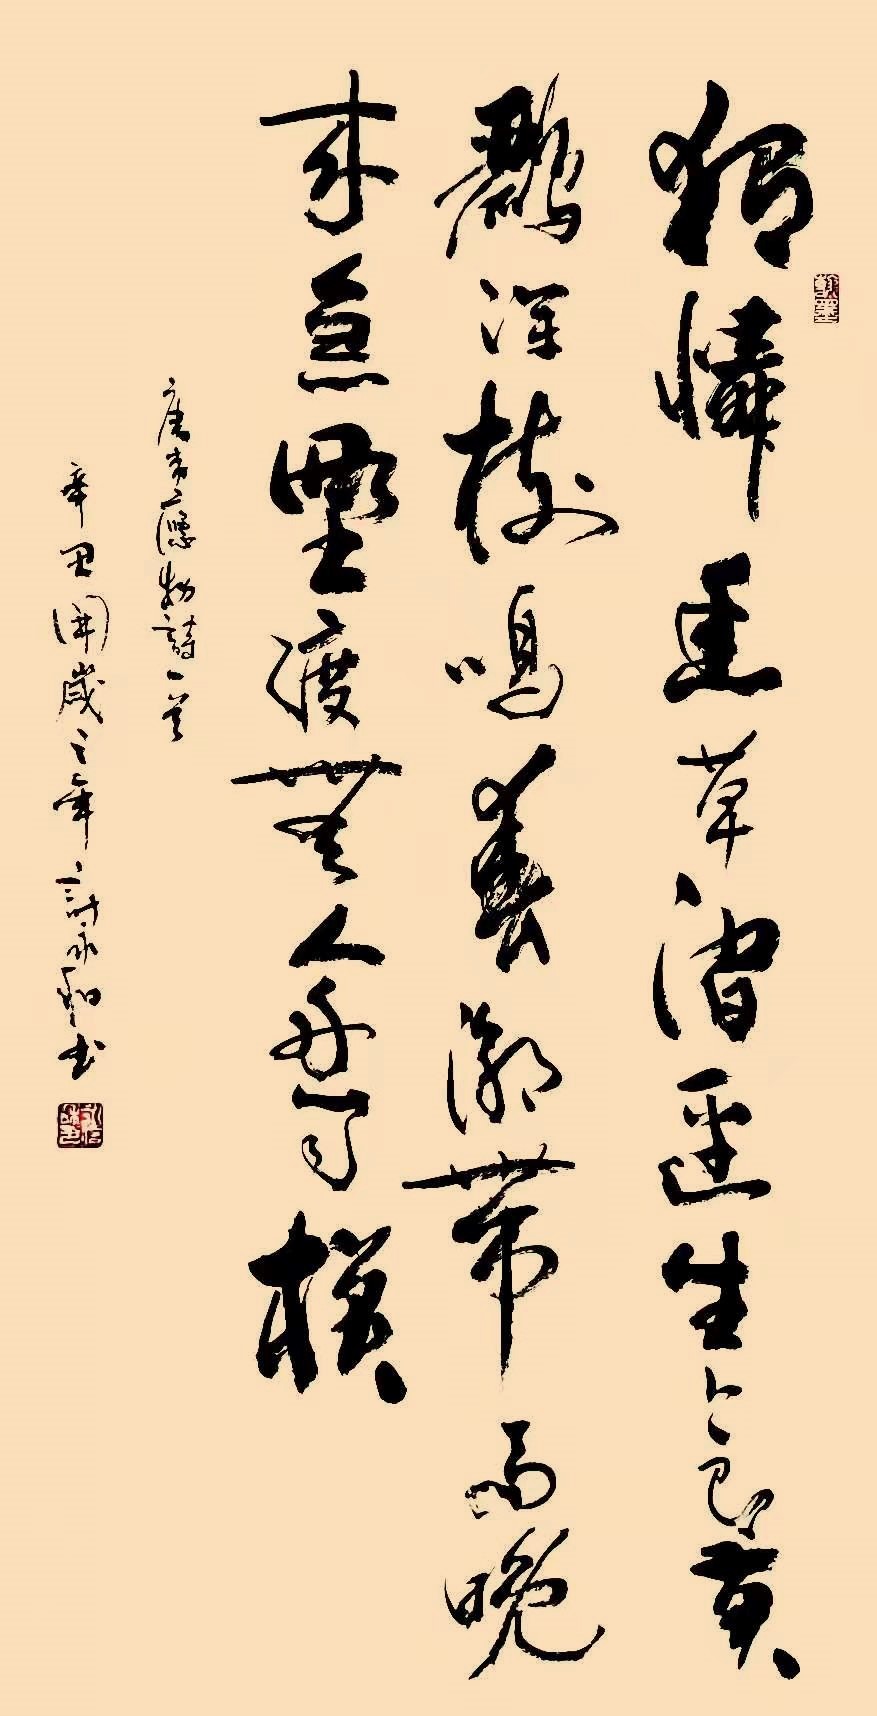 獨憐幽草澗邊生上有黃
鸝深樹鳴春潮帶雨晚
來急野渡無人舟自橫
唐韋應物詩一首
辛丑開歲之年計永和書